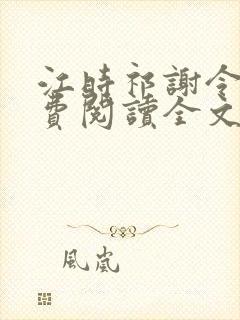 江時祁謝令
費閱讀全文
風嵐